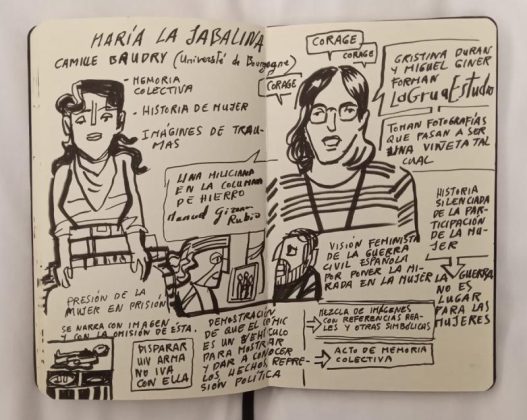 MARÍA LA JABALINA
CAMILLE BAUDRY (Université de Bourgogne)
- MEMORIA
COLECTIVA
- HISTORIA DE MUJER
- IMÁGINES DE TRAU-
MAS
UNA MILICIANA
EN LA COLUMNA
DE HIERRO
Manuel
Rubio
PRESIÓN DE LA
MUJER EN PRISIÓN
SE NARRA CON IMAGEN
Y CON LA OMISIÓN DE ÉSTA.
DISPARAR
UN ARMA
NO IVA
CON ELLA
DEMOSTRACIÓN
DE QUE EL CÓMIC
ES UN VEHÍCULO
PARA MOSTRAR
Y DAR A CONOCER
LOS HECHOS, REPRE-
SIÓN POLÍTICA
CORAGE
CORAGE
CORAGE
CRISTINA DURAN
Y MIGUEL GINER
FORMAN
LaGruaEstudio
TOMAN FOTOGRAFÍAS
QUE PASAN A SER
UNA VIÑETA TAL
CUAL
HISTORIA
SILENCIADA
DE LA PAR-
TICIPACIÓN
DE LA MU-
JER
LA GUERRA
NO ES
LUGAR
PARA LAS
MUJERES
VISIÓN FEMINISTA
DE LA GUERRA
CIVIL ESPAÑOLA
POR PONER LA MI-
RADA EN LA MUJER
MEZCLA DE IMÁGENES
CON REFERENCIAS REA-
LES Y OTRAS SIMBÓLICAS
ACTO DE MEMORIA
COLECTIVA